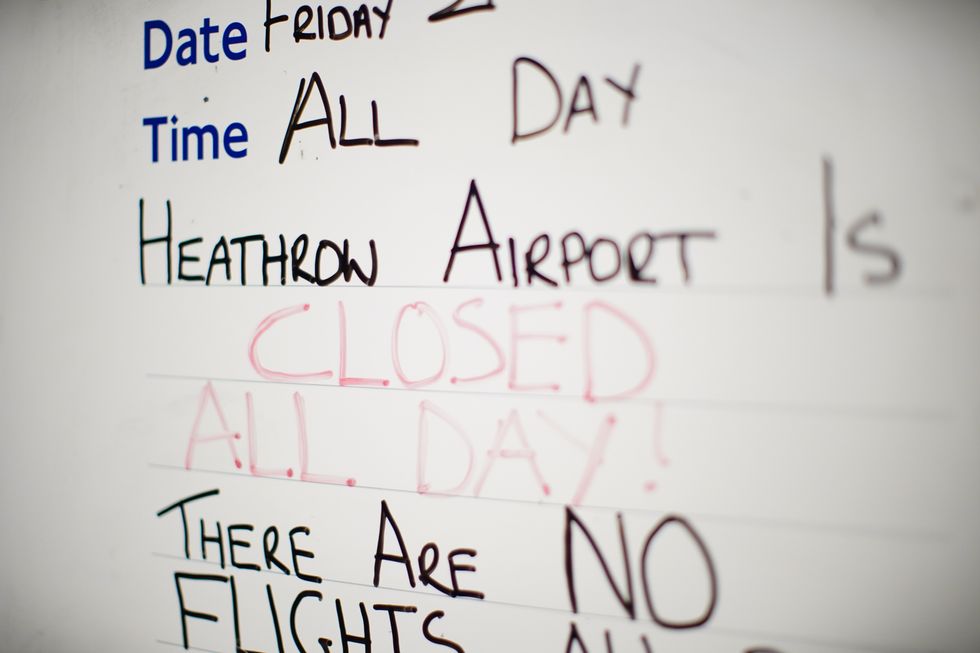 Date FRIDAY 2
Time ALL DAY
HEATHROW AIRPORT IS
CLOSED
ALL DAY!
THERE ARE NO
FLIGHTS ALL